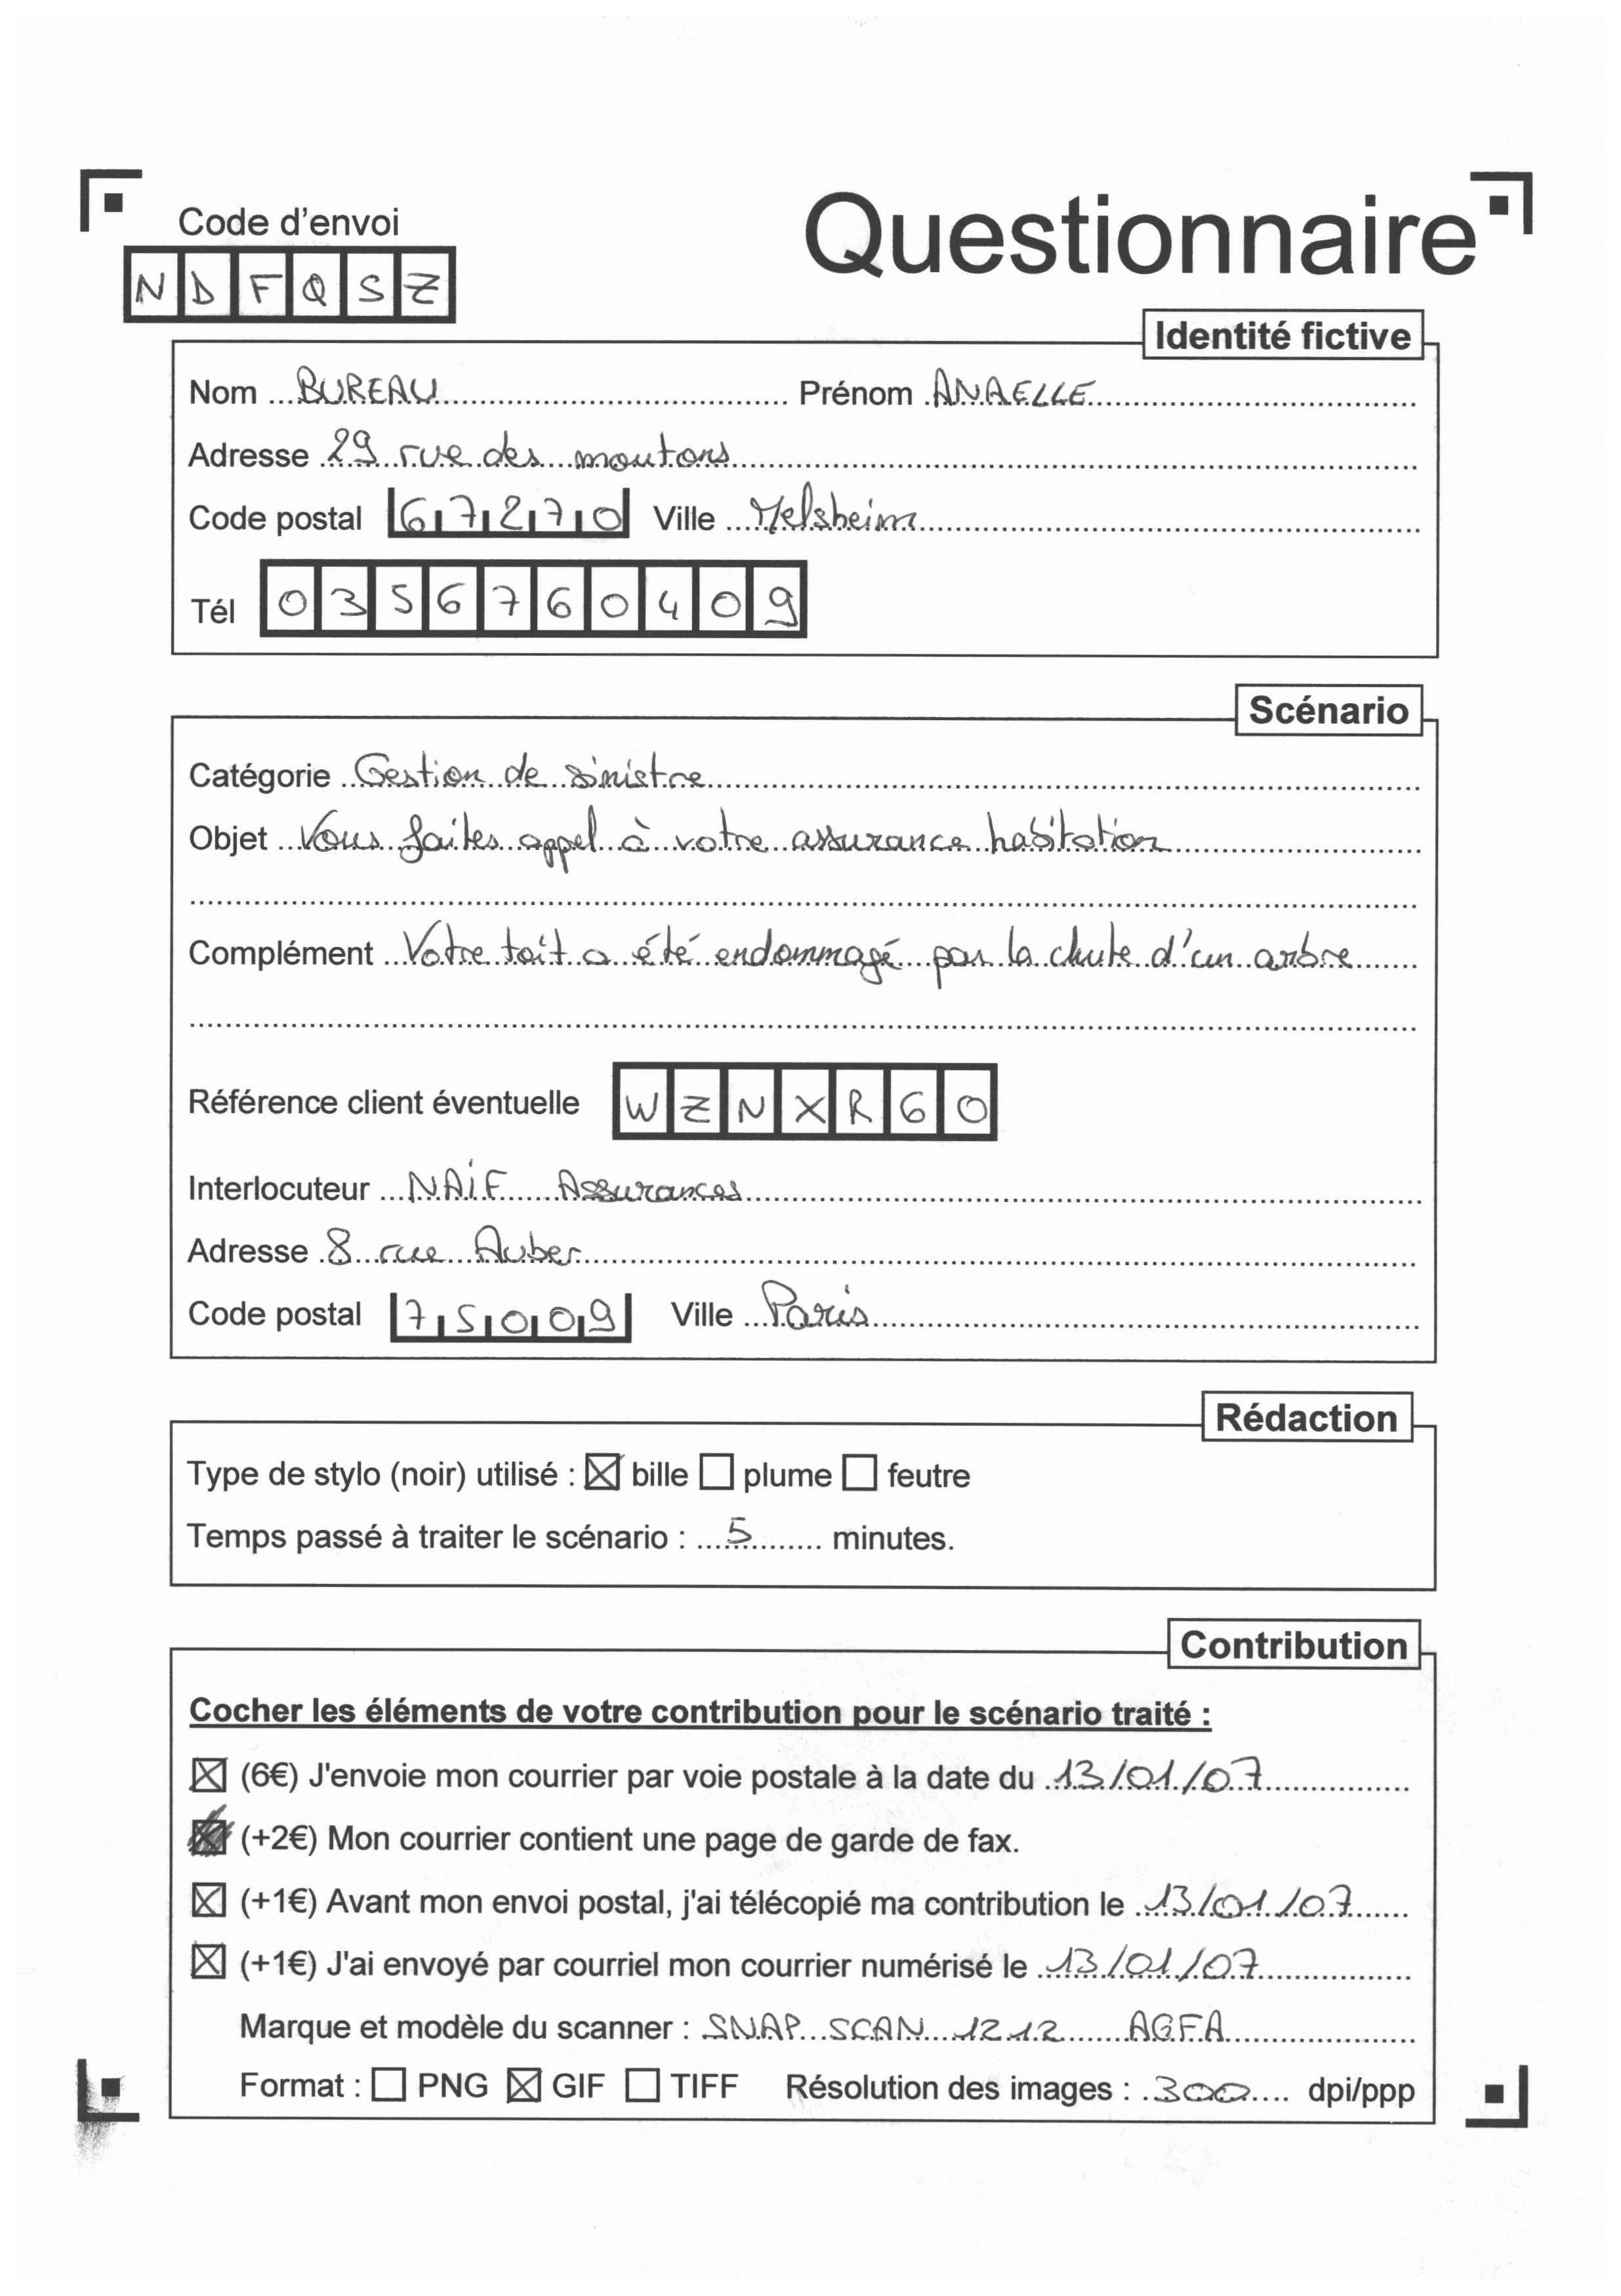 Code d'envoi
Questionnaire
NDFQSZ
Identité fictive
Nom BUREAU Prénom ANAELLE
Adresse 29 rue des moutons
Code postal 67270 Ville Melsheim
Tél 0356760409
Scénario
Catégorie Gestion de sinistre
Objet Vous faites appel à votre assurance habitation
Complément Votre toit a été endommagé par la chute d'un arbre
Référence client éventuelle WZNXR60
Interlocuteur NAiF Assurances
Adresse 8 rue Auber
Code postal 75009 Ville Paris
Rédaction
Type de stylo (noir) utilisé : ☒ bille ☐ plume ☐ feutre
Temps passé à traiter le scénario : 5 minutes.
Contribution
Cocher les éléments de votre contribution pour le scénario traité :
☒ (6€) J'envoie mon courrier par voie postale à la date du 13/01/07
(+2€) Mon courrier contient une page de garde de fax.
☒ (+1€) Avant mon envoi postal, j'ai télécopié ma contribution le 13/01/07
☒ (+1€) J'ai envoyé par courriel mon courrier numérisé le 13/01/07
Marque et modèle du scanner : SNAP SCAN 1212 AGFA
Format : ☐ PNG ☒ GIF ☐ TIFF Résolution des images : 300 dpi/ppp